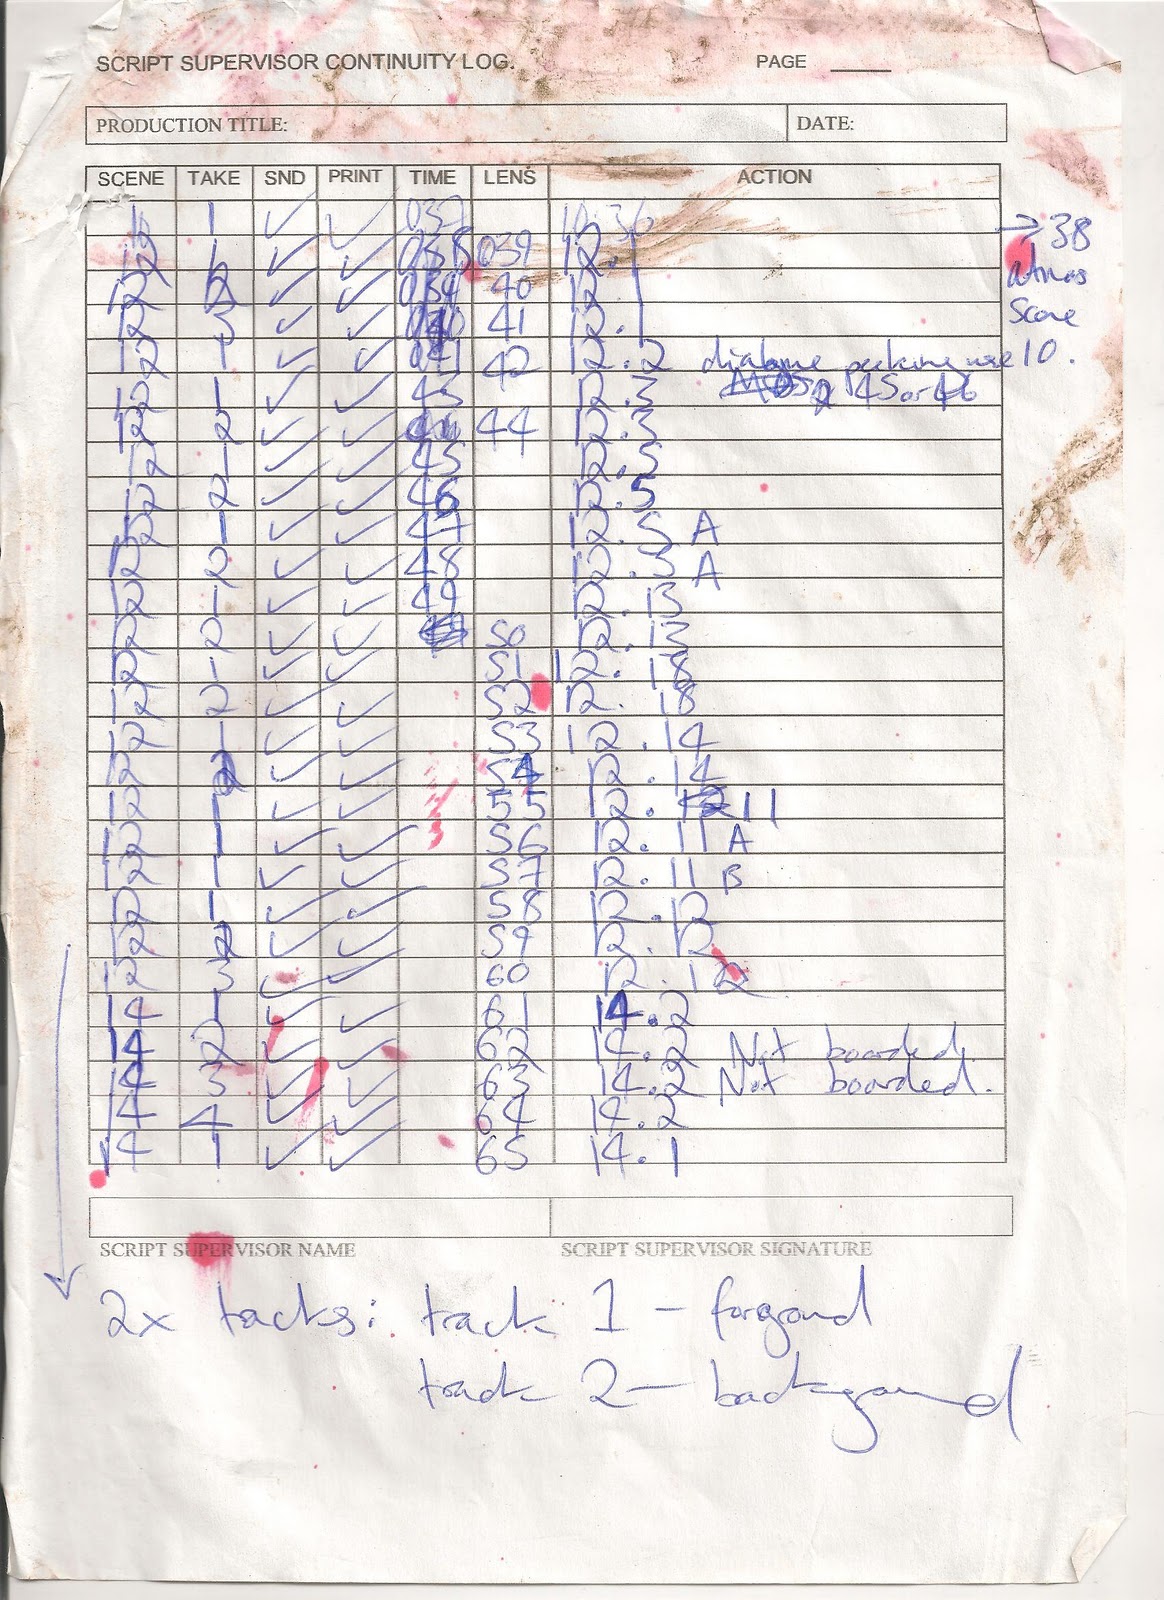 SCRIPT SUPERVISOR CONTINUITY LOG. PAGE
PRODUCTION TITLE: DATE:
SCENE TAKE SND PRINT TIME LENS ACTION
1 ✓ ✓ 037 10.36 → 38
12 1 ✓ ✓ 038 039 12.1 Atmos
12 2 ✓ ✓ 40 12.1 Scene
12 3 ✓ ✓ 41 12.1
12 1 ✓ ✓ 42 12.2 dialogue 10.
12 1 ✓ ✓ 43 12.3 45 or 46
12 2 ✓ ✓ 44 12.3
12 1 ✓ ✓ 45 12.5
12 2 ✓ ✓ 46 12.5
12 1 ✓ ✓ 47 12.5 A
12 2 ✓ ✓ 48 12.5 A
12 1 ✓ ✓ 49 12.13
12 2 ✓ ✓ 50 12.13
12 1 ✓ ✓ 51 12.18
12 2 ✓ ✓ 52 12.18
12 1 ✓ ✓ 53 12.14
12 2 ✓ ✓ 54 12.14
12 1 ✓ ✓ 55 12.11
12 1 ✓ ✓ 56 12.11 A
12 1 ✓ ✓ 57 12.11 B
12 1 ✓ ✓ 58 12.12
12 2 ✓ ✓ 59 12.12
12 3 ✓ ✓ 60 12.12
14 1 ✓ ✓ 61 14.2
14 2 ✓ ✓ 62 14.2 Not boarded.
14 3 ✓ ✓ 63 14.2 Not boarded.
14 4 ✓ ✓ 64 14.2
14 1 ✓ ✓ 65 14.1
SCRIPT SUPERVISOR NAME SCRIPT SUPERVISOR SIGNATURE
2x tracks: track 1 - forgound
track 2 - background